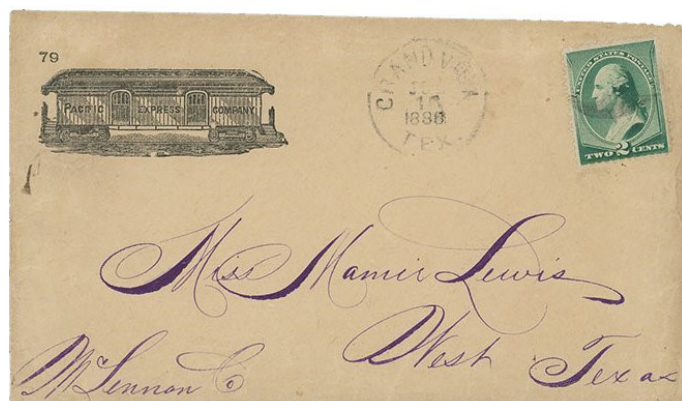 79
PACIFIC EXPRESS COMPANY
GRANDVIEW
15
1888
TEX.
UNITED STATES POSTAGE
TWO 2 CENTS
Miss Mamie Lewis
West Texas
McLennan Co